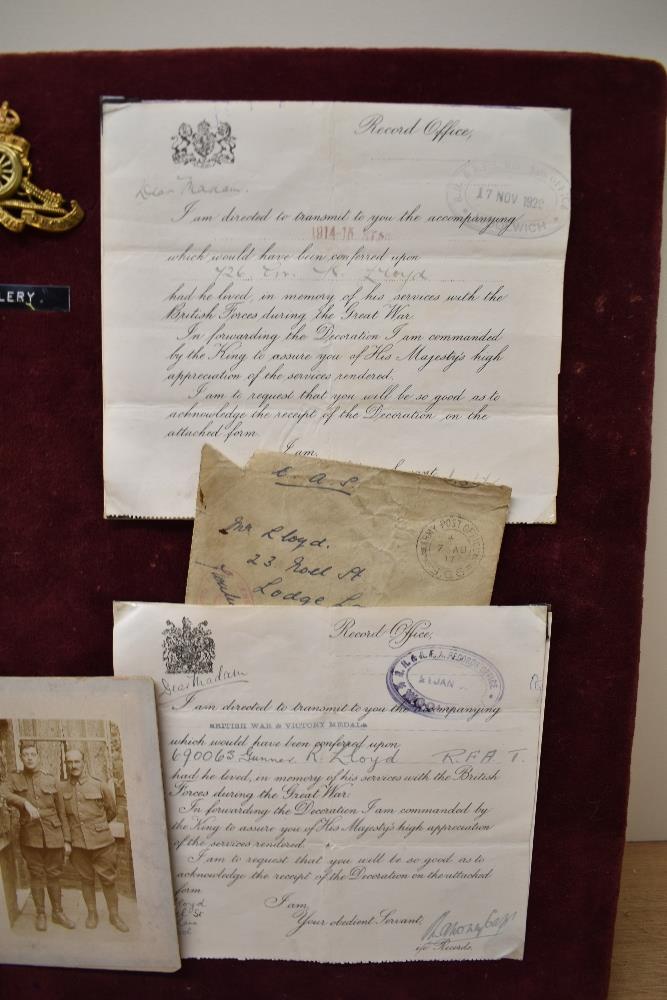 LERY.
Record Office,
17 NOV 1922
WICH
Dear Madam.
I am directed to transmit to you the accompanying
1914-15 STAR
which would have been conferred upon
726 Gnr. R. Lloyd
had he lived, in memory of his services with the
British Forces during the Great War.
In forwarding the Decoration I am commanded
by the King to assure you of His Majesty's high
appreciation of the services rendered.
I am to request that you will be so good as to
acknowledge the receipt of the Decoration on the
attached form.
I am,
Servant,
O. A. S.
Mr Lloyd.
23 Noel St
Lodge L
ARMY POST OFFICE
7 AU
17
Record Office,
R.H. & R.F.A. RECORDS OFFICE
21 JAN
Dear Madam
I am directed to transmit to you the accompanying
BRITISH WAR & VICTORY MEDALS
which would have been conferred upon
690063 Gunner R. Lloyd R.F.A. T.
had he lived, in memory of his services with the British
Forces during the Great War.
In forwarding the Decoration I am commanded by
the King to assure you of His Majesty's high appreciation
of the services rendered.
I am to request that you will be so good as to
acknowledge the receipt of the Decoration on the attached
form
I am,
Your obedient Servant,
loyd
St
i/c Records.